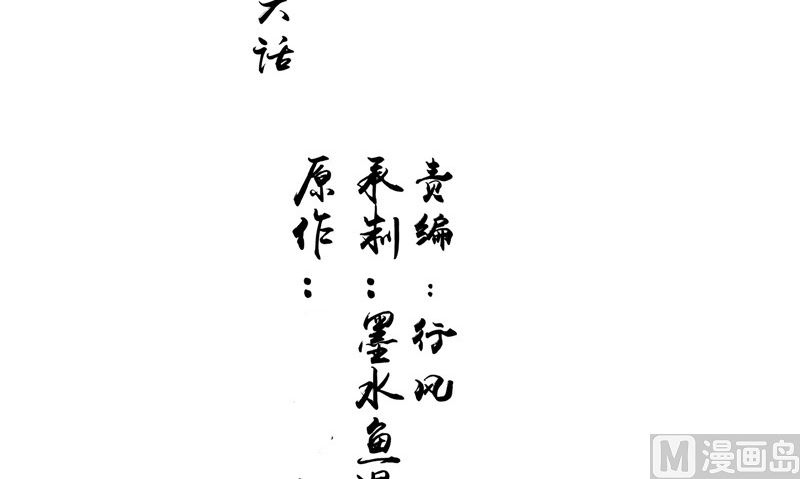 责编：行风
承制：墨水鱼漫
原作：
话
漫画岛